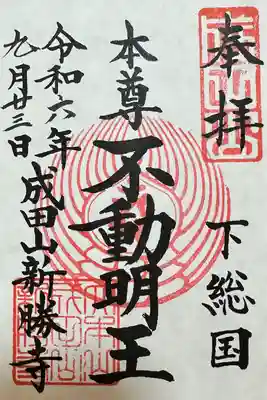 奉拝
下総国
本尊
不動明王
令和六年
九月廿三日
成田山新勝寺